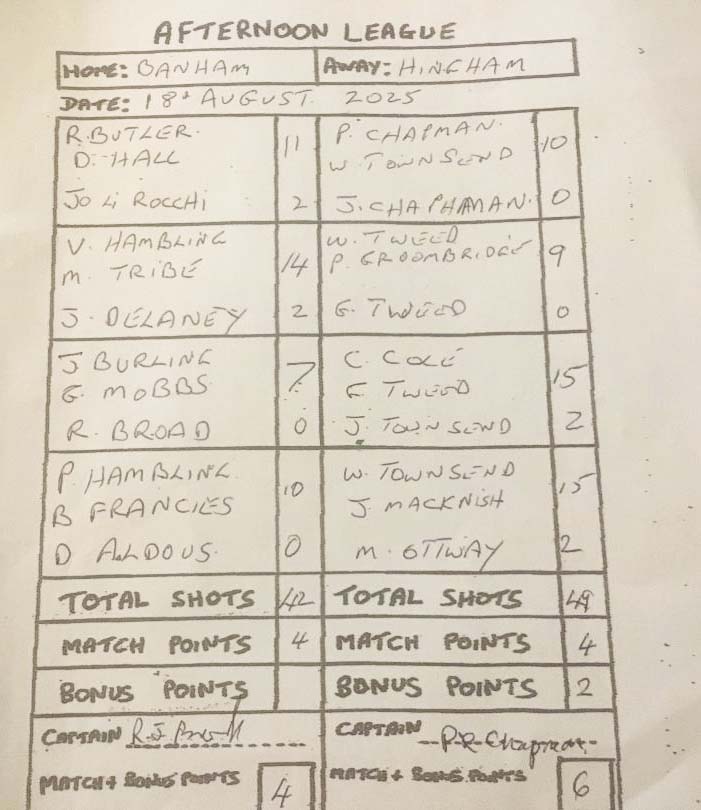 AFTERNOON LEAGUE
HOME: BANHAM AWAY: HINGHAM
DATE: 18th AUGUST 2025
R. BUTLER. 11 P. CHAPMAN. 10
D. HALL W. TOWNSEND
JO LI ROCCHI 2 J. CHAPHMAN. 0
V. HAMBLING 14 W. TWEED 9
M. TRIBE P. GROOMBRIDGE
J. DELANEY 2 G. TWEED 0
J BURLING 7 C. COLE 15
G. MOBBS F TWEED
R. BROAD 0 J. TOWNSEND 2
P. HAMBLING. 10 W. TOWNSEND 15
B FRANCIES J. MACKNISH
D ALDOUS. 0 M. OTTWAY 2
TOTAL SHOTS 42 TOTAL SHOTS 49
MATCH POINTS 4 MATCH POINTS 4
BONUS POINTS BONUS POINTS 2
CAPTAIN R J CAPTAIN P.R. Chapman
MATCH + BONUS POINTS 4 MATCH + BONUS POINTS 6